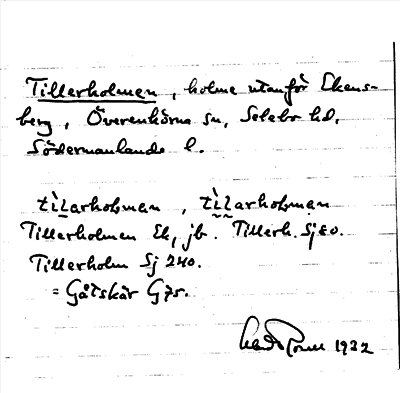 Tillerholmen, holme utanför Ekens-
berg, Överenhörna sn, Selebo hd,
Södermanlands l.
tìlarholman, tìlarholman
Tillerholmen Ek, jb. Tillerh. Sj 80.
Tillerholm Sj 240.
= Gåtskär G 75.
1932